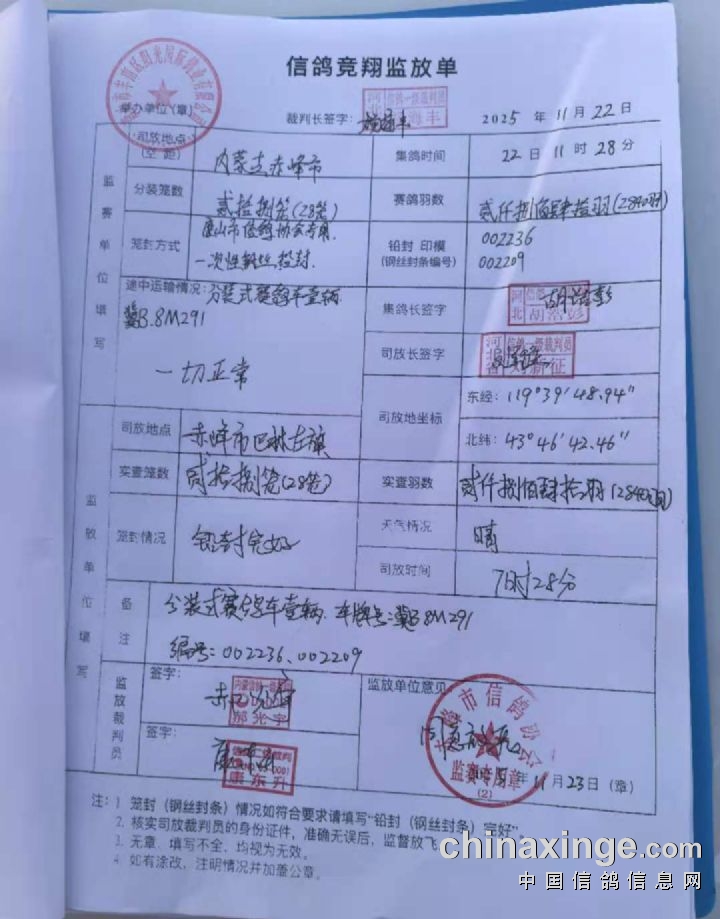 信鸽竞翔监放单
举办单位（章）
裁判长签字：
2025 年 11 月 22 日
监赛单位填写
司放地点（空距）
内蒙古赤峰市
集鸽时间
22 日 11 时 28 分
分装笼数
贰拾捌笼(28笼)
赛鸽羽数
贰仟捌佰肆拾羽(2840羽)
笼封方式
唐山市信鸽协会专用
一次性钢丝控封.
铅封 印模
(钢丝封条编号)
002236
002209
途中运输情况：分装式赛鸽车壹辆
冀B.8M291
一切正常
集鸽长签字
胡浩彭
司放长签字
信鸽一级裁判员
司放地坐标
东经：119°39′48.94″
北纬：43°46′42.46″
监放单位填写
司放地点
赤峰市巴林左旗
实查笼数
贰拾捌笼(28笼)
实查羽数
贰仟捌佰肆拾羽(2840羽)
笼封情况
铅封完好
天气情况
晴
司放时间
7时28分
备注
分装式赛鸽车壹辆.车牌号:冀B.8M291
编号:002236、002209
监放裁判员
签字：
郝光宇
签字：
康东升
监放单位意见
赤峰市信鸽协会
监赛专用章
(2)
11月23日（章）
注：1. 笼封（钢丝封条）情况如符合要求请填写“铅封（钢丝封条）完好”。
2. 核实司放裁判员的身份证件，准确无误后，监督放飞
3. 无章、填写不全，均视为无效。
4. 如有涂改，注明情况并加盖公章。
chinaxinge.com
中国信鸽信息网